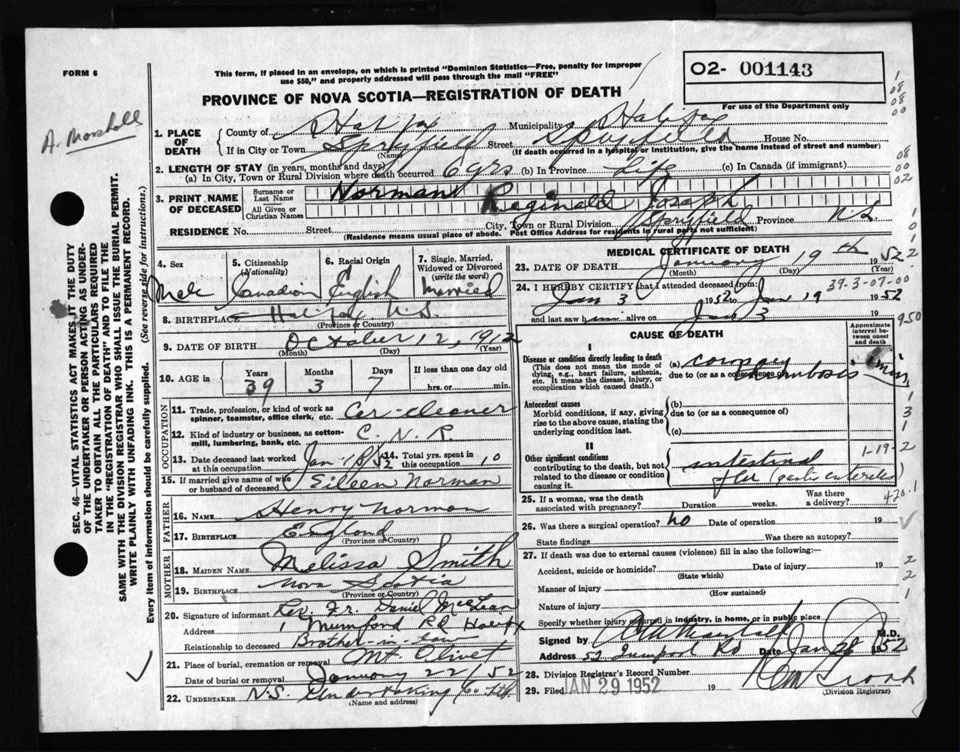 FORM 6
This form, if placed in an envelope, on which is printed "Dominion Statistics—Free, penalty for improper
use $50," and properly addressed will pass through the mail "FREE"
O2- 001143
For use of the Department only
PROVINCE OF NOVA SCOTIA—REGISTRATION OF DEATH
A. Marshall
1. PLACE OF DEATH
County of Halifax Municipality Halifax
If in City or Town Spryfield Street Spryfield House No.
(Name) (If death occurred in a hospital or institution, give the name instead of street and number)
2. LENGTH OF STAY (in years, months and days)
(a) In City, Town or Rural Division where death occurred 6 yrs (b) In Province Life (c) In Canada (if immigrant)
3. PRINT NAME OF DECEASED
Surname or Last Name Norman
All Given or Christian Names Reginald Joseph
RESIDENCE No. Street City, Town or Rural Division Spryfield Province N S
(Residence means usual place of abode. Post Office Address for residents in rural parts not sufficient)
4. Sex Male
5. Citizenship (Nationality) Canadian
6. Racial Origin English
7. Single, Married, Widowed or Divorced (write the word) Married
8. BIRTHPLACE Halifax N.S.
(Province or Country)
9. DATE OF BIRTH October 12, 1912
(Month) (Day) (Year)
10. AGE in Years 39 Months 3 Days 7 If less than one day
hrs. or min.
OCCUPATION
11. Trade, profession, or kind of work as spinner, teamster, office clerk, etc. Car-cleaner
12. Kind of industry or business, as cotton-mill, lumbering, bank, etc. C. N. R.
13. Date deceased last worked at this occupation Jan 18/52 14. Total yrs. spent in this occupation 10
15. If married give name of wife or husband of deceased Eileen Norman
FATHER
16. NAME Henry Norman
17. BIRTHPLACE England
(Province or Country)
MOTHER
18. MAIDEN NAME Melissa Smith
19. BIRTHPLACE Nova Scotia
(Province or Country)
20. Signature of informant Rev. Fr. Daniel
Address 1 Mumford Rd Halifax
Relationship to deceased Brother-in-law
21. Place of burial, cremation or removal Mt. Olivet
Date of burial or removal January 22 1952
22. UNDERTAKER N.S. Undertaking Co. Ltd.
(Name and address)
MEDICAL CERTIFICATE OF DEATH
23. DATE OF DEATH January 19th 1952
(Month) (Day) (Year)
39-3-07-00
24. I HEREBY CERTIFY that I attended deceased from:
Jan 3 1952 to Jan 19 1952
and last saw him alive on Jan 3 1950
CAUSE OF DEATH
Approximate interval between onset and death
I
Disease or condition directly leading to death
(This does not mean the mode of dying, e.g., heart failure, asthenia, etc. It means the disease, injury, or complication which caused death.)
(a) coronary
due to (or as a consequence of) thrombosis
Antecedent causes
Morbid conditions, if any, giving rise to the above cause, stating the underlying condition last.
(b)
due to (or as a consequence of)
(c)
II
Other significant conditions
contributing to the death, but not related to the disease or condition causing it.
intestinal
flu
1-19-2
420.1
25. If a woman, was the death associated with pregnancy? Duration weeks. Was there a delivery?
26. Was there surgical operation? no Date of operation 19
State findings Was there an autopsy?
27. If death was due to external causes (violence) fill in also the following:—
Accident, suicide or homicide? Date of injury 19
(State which)
Manner of injury
(How sustained)
Nature of injury
Specify whether injury occurred in industry, in home, or in public place
Signed by M.D.
Address 52 Rd Date Jan 1952
28. Division Registrar's Record Number
29. Filed JAN 29 1952 19
(Division Registrar)
SEC. 46—VITAL STATISTICS ACT MAKES IT THE DUTY
OF THE UNDERTAKER OR PERSON ACTING AS UNDER-
TAKER TO OBTAIN ALL THE PARTICULARS REQUIRED
IN THE "REGISTRATION OF DEATH" AND TO FILE THE
SAME WITH THE DIVISION REGISTRAR WHO SHALL ISSUE THE BURIAL PERMIT.
WRITE PLAINLY WITH UNFADING INK. THIS IS A PERMANENT RECORD.
Every item of information should be carefully supplied. (See reverse side for instructions.)